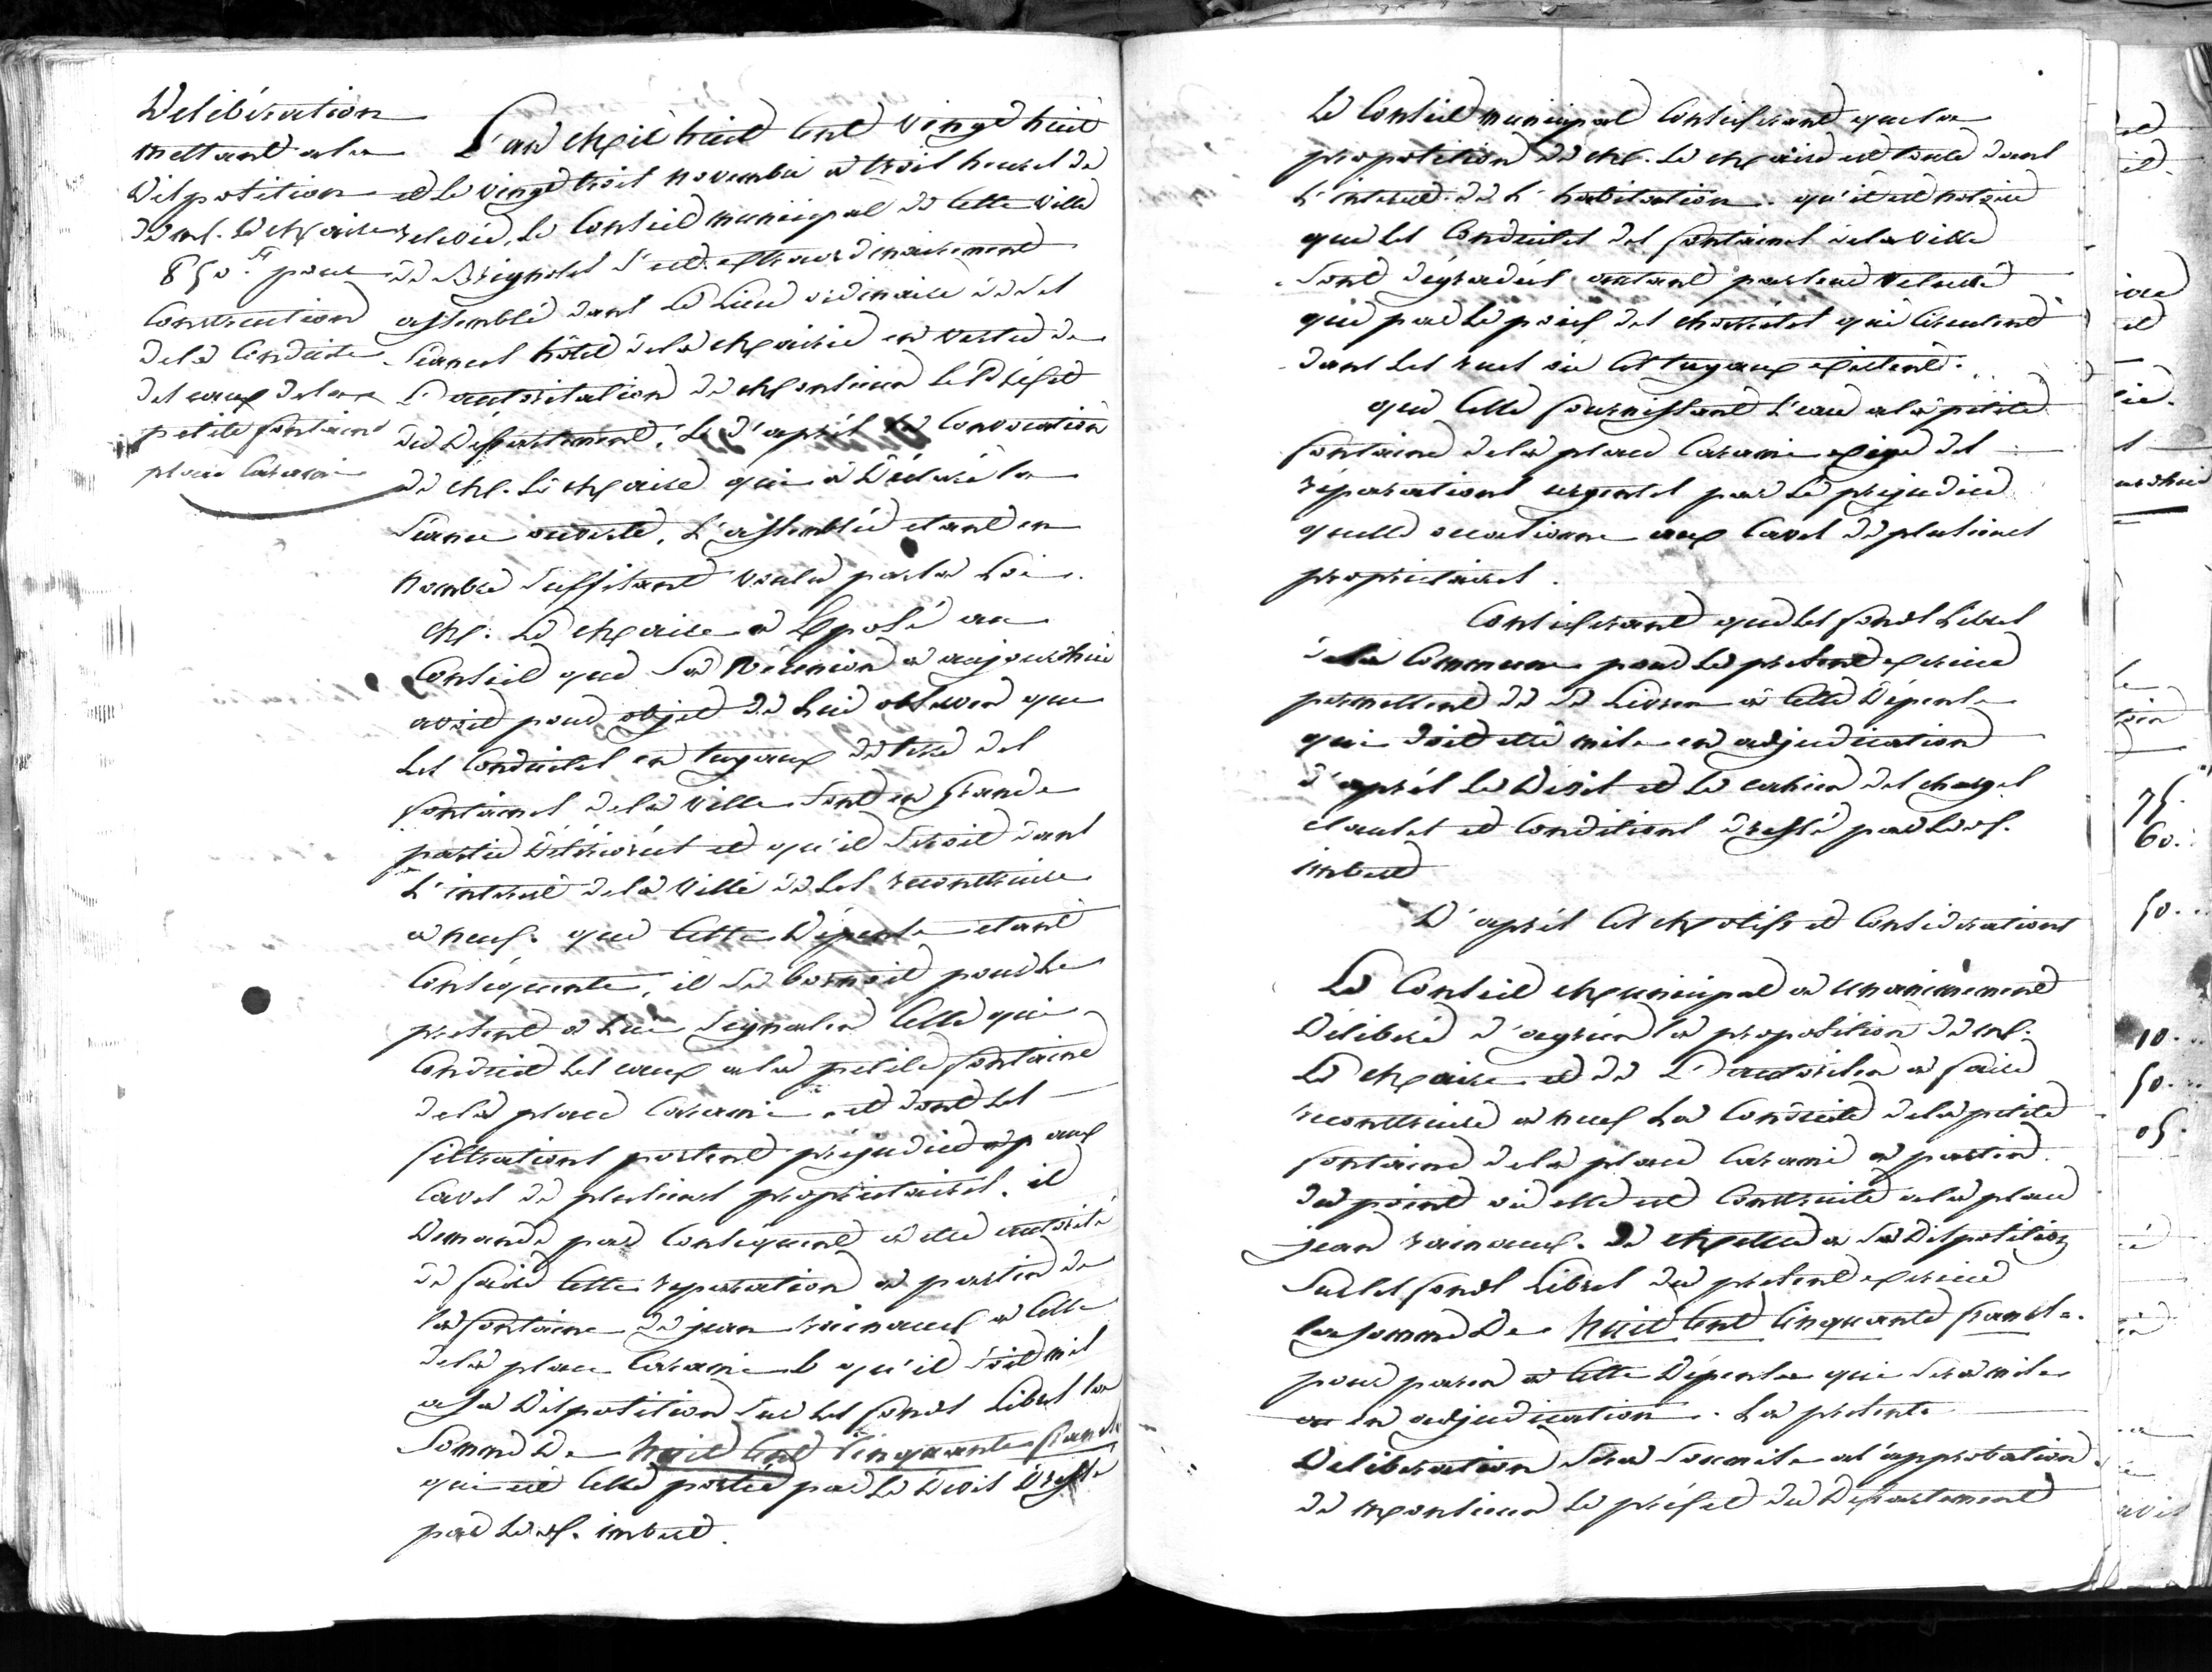 Délibération
mettant a la
Disposition
de M. le Maire
850.ff pour
Construction
de la Conduite
des eaux de la
petite fontaine
place Carami
L'an Mil huit Cent vingt huit
et le vingt trois novembre a trois heures de
relevée, le Conseil municipal de cette ville
de Brignoles s'est extraordinairement
assemblé dans le Lieu ordinaire de ses
séances hôtel de la Mairie en vertu de
L'autorisation de Monsieur le Préfet
du Département, & d'après la Convocation
de M. le Maire qui a Déclaré la
Séance ouverte, L'assemblée etant en
nombre suffisant voulu par la Loi.
M. le Maire a Exposé au
Conseil que Sa Réunion a aujourd'hui
avoit pour objet de Lui observer que
Les Conduites en tuyaux de terre des
fontaines de la ville sont en Grande
partie Détériorées et qu'il seroit dans
L'intérêt de la ville de Les reconstruire
a neuf. que Cette Dépense etant
Conséquente, il se bornoit pour le
présent a Lui Signaler Celle qui
Conduit les eaux a la petite fontaine
de la place Carami, et dont Les
filtrations portent préjudice aux
Caves de plusieurs propriétaires. il
Demande par Conséquent a être autorisé
de faire Cette reparation a partir de
la fontaine de jean rainaud a Celle
de la place Carami & qu'il soit mis
a Sa Disposition Sur les fonds Libres la
Somme De huit Cent Cinquante francs
qui est Celle portée par Le Devis Dressé
par Le Sr. imbert.
Le Conseil municipal Considerant que la
proposition de M. le Maire est toute dans
L'intérêt de L'habitation. qu'il est notoire
que les Conduites des fontaines de la ville
sont dégradées autant par leur vetusté
que par le poids des charrettes qui Circulent
dans les rues où Ces tuyaux existent.
que Celle fournissant L'eau a la petite
fontaine de la place Carami exige des
réparations urgentes par le préjudice
quelle occasionne aux Caves de plusieurs
propriétaires.
Considerant que les fonds Libres
de la Commune pour le present exercice
permettent de se Livrer a Cette Dépense
qui doit etre mise en adjudication
d'après le Devis et le cahier des charges
clauses et Conditions dressé par le Sr.
imbert
D'après Ces Motifs et Considerations
Le Conseil Municipal a unanimement
Délibéré d'agréer la proposition de M.
le Maire et de L'autoriser a faire
reconstruire a neuf La Conduite de la petite
fontaine de la place Carami a partir
du point où elle est Construite a la place
jean rainaud. de Mettre a Sa Disposition
Sur les fonds Libres du present exercice
la somme De huit Cent Cinquante francs.
pour parer a Cette Dépense qui Sera mise
en adjudication. La présente
Déliberation Sera Soumise a l'approbation
de Monsieur le préfet du Département